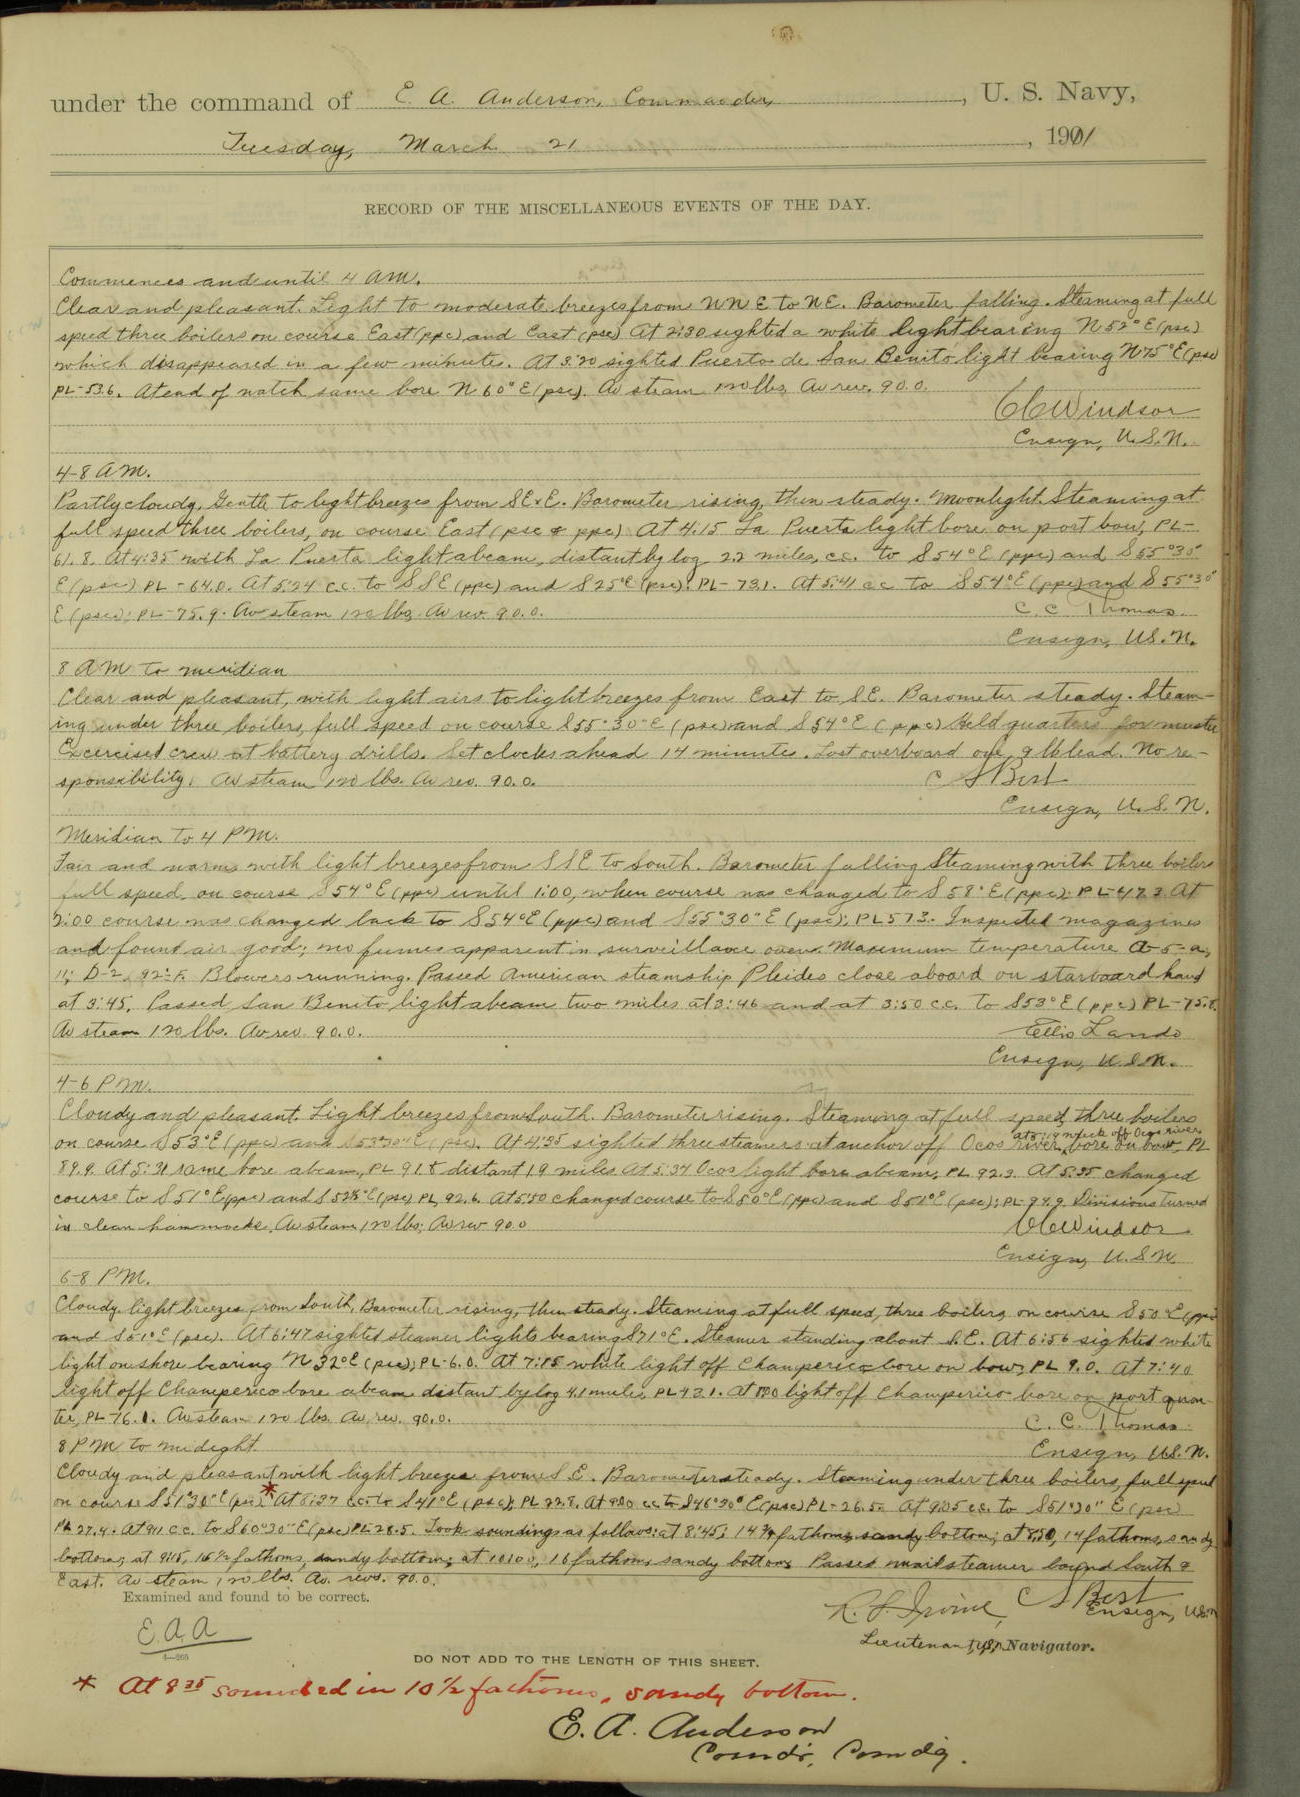 under the command of E. A. Anderson, Commander, U. S. Navy,
Tuesday, March 21, 1901
RECORD OF THE MISCELLANEOUS EVENTS OF THE DAY.
Commences and until 4 AM.
Clear and pleasant. Light to moderate breezes from NNE to NE. Barometer falling. Steaming at full
speed three boilers on course East (ppc) and East (psc) At 2:30 sighted a white light bearing N52°E (psc)
which disappeared in a few minutes. At 3:20 sighted Puerto de San Benito light bearing N75°E (psc)
PL-53.6. At end of watch same bore N60°E (psc). Av steam 120 lbs, Av rev. 90.0.
Windsor
Ensign, U.S.N.
4-8 AM.
Partly cloudy. Gentle to light breezes from SExE. Barometer rising, then steady. Moonlight. Steaming at
full speed three boilers, on course East (psc & ppc). At 4.15 La Puerta light bore on port bow, PL-
61.8. At 4:35 with La Puerta light abeam, distant by log 2.2 miles, c.c. to S54°E (ppc) and S55°30"
E (psc) PL-64.0. At 5:24 c.c. to SSE (ppc) and S25°E (psc): PL-73.1. At 5:41 c.c to S54°E (ppc) and S55°30"
E (psc): PL-75.9. Av steam 120 lbs, Av rev. 90.0.
C. C. Thomas
Ensign, U.S.N.
8 AM to meridian
Clear and pleasant, with light airs to light breezes from East to SE. Barometer steady. Steam-
ing under three boilers, full speed on course S55°30"E (psc) and S54°E (ppc) Held quarters for muster
Excercised crew at battery drills. Set clocks ahead 14 minutes. Lost overboard one 9 lb lead. No re-
sponsibility. Av steam 120 lbs. Av rev. 90.0.
C S Best
Ensign, U.S.N.
Meridian to 4 PM.
Fair and warm with light breezes from SSE to South. Barometer falling Steaming with three boilers
full speed, on course S54°E (ppc) until 1:00, when course was changed to S58°E (ppc): PL-47.3 At
2:00 course was changed back to S54°E (ppc) and S55°30"E (psc); PL 57.3. Inspected magazines
and found air good; no fumes apparent in surveillance ovens. Maximum temperature A-5-a,
11; D-2, 92°F. Blowers running. Passed American steamship Pleides close aboard on starboard hand
at 3:45. Passed San Benito light abeam two miles at 3:46 and at 3:50 c.c. to S53°E (ppc) PL-75.8.
Av steam 120 lbs. Av rev. 90.0.
Ellis Lando
Ensign, U.S.N.
4-6 PM.
Cloudy and pleasant. Light breezes from South. Barometer rising. Steaming at full speed, three boilers
on course S53°E (ppc) and S53°30"E (psc). At 4:35 sighted three steamers at anchor off Ocos river,
bore on bow, PL
89.9. At 5:31 same bore abeam, PL 91.8 distant 1.9 miles At 5:34 Ocos light bore abeam, PL 92.3. At 5:35 changed
course to S51°E (ppc) and S52½°E (psc) PL, 92.6. At 5:50 changed course to S50°E (ppc) and S51°E (psc); PL-94.9. Divisions turned
in clean hammocks. Av steam 120 lbs; Av rev 90.0
Windsor
Ensign, U.S.N.
6-8 PM.
Cloudy. light breezes from South, Barometer rising, then steady. Steaming at full speed, three boilers, on course S50°E (ppc)
and S51°E (psc). At 6:47 sighted steamer lights bearing S71°E. Steamer standing about S.E. At 6:56 sighted white
light on shore bearing N32°E (psc); PL-6.0. At 7:15 white light off Champerico bore on bow; PL 9.0. At 7:40
light off Champerico bore abeam distant by log 4.1 miles, PL 13.1. At light off Champerico bore on port quar-
ter, PL-16.1. Av steam 120 lbs. Av. rev. 90.0.
C. C. Thomas
Ensign, U.S.N.
8 PM to midnight
Cloudy and pleasant with light breezes from S.E. Barometer steady. Steaming under three boilers, full speed
on course S51°30"E (psc)* At 8:37 c.c. to S41°E (psc); PL 22.8. At 9:00 c.c to S46°30"E (psc) PL-26.5. At 9:05 c.c. to S51°30" E (psc)
PL 27.4. At 9:11 c.c. to S60°30"E (psc) PL-28.5. Took soundings as follows: at 8:45; 14¾ fathoms, sandy bottom; at 8:50, 14 fathoms, sandy
bottom; at 9:15, 16½ fathoms, sandy bottom; at 10:00, 16 fathoms sandy bottom. Passed mail steamer bound South &
East. Av steam 120 lbs. Av. revs. 90.0.
C S Best
Ensign, U.S.N
Examined and found to be correct.
E. A. A
R. S. Irvine,
Lieutenant, U.S.N., Navigator.
4—266
DO NOT ADD TO THE LENGTH OF THIS SHEET.
* At 8 35 sounded in 10½ fathoms, sandy bottom.
E. A. Anderson
Comdr, Comdg.